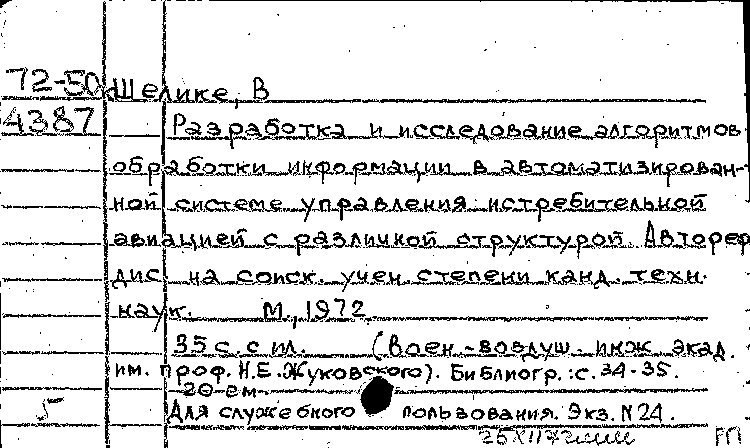 72-50 Шелике, В
4387 Разработка и исследование алгоритмов
обработки информации в автоматизирован-
ной системе управления истребительной
авиацией с различной структурой. Авторер
дис. на соиск. учен. степени канд. техн.
наук. М., 1972.
35 с. с ил. (Воен.-воздуш. инж. акад.
им. проф. Н.Е. Жуковского). Библиогр.: с. 34-35.
20 см.
5 Для служебного пользования. Экз. N 24.
ГП